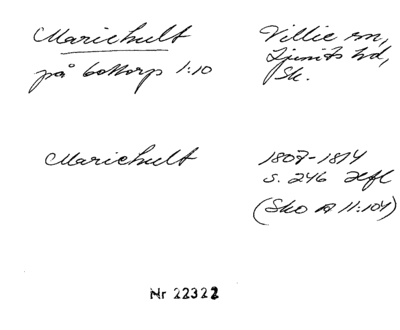 Mariehult
Villie sn,
Ljunits hd,
på Bottorp 1:10
Sk.
Mariehult
1807-1814
s. 246 Hfl
(Sko A 11:104)
Nr 22322